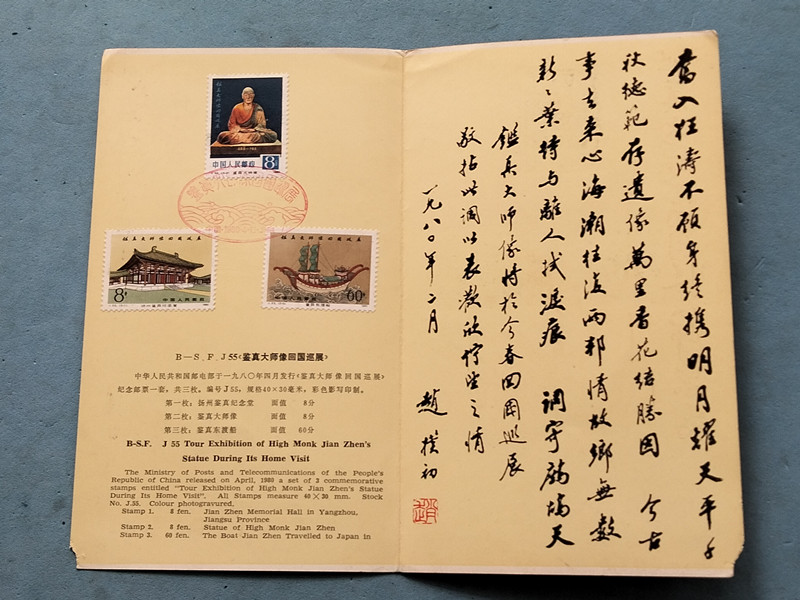 鉴真大师像回国巡展
中国人民邮政 8分
鉴真大师像回国巡展
鉴真大师像回国巡展
8分 中国人民邮政
鉴真大师像回国巡展
中国人民邮政 60分
B—S.F. J 55《鉴真大师像回国巡展》
中华人民共和国邮电部于一九八〇年四月发行《鉴真大师像回国巡展》
纪念邮票一套。共三枚。编号J55，规格40×30毫米，彩色影写印制。
第一枚：扬州鉴真纪念堂 面值 8分
第二枚：鉴真大师像 面值 8分
第三枚：鉴真东渡船 面值 60分
B-S.F. J 55 Tour Exhibition of High Monk Jian Zhen's
Statue During Its Home Visit
The Ministry of Posts and Telecommunications of the People's
Republic of China released on April, 1980 a set of 3 commemorative
stamps entitled "Tour Exhibition of High Monk Jian Zhen's Statue
During Its Home Visit". All Stamps measure 40×30 mm. Stock
No. J.55. Colour photogravured.
Stamp 1. 8 fen. Jian Zhen Memorial Hall in Yangzhou,
Jiangsu Province
Stamp 2. 8 fen. Statue of High Monk Jian Zhen
Stamp 3. 60 fen. The Boat Jian Zhen Travelled to Japan in
奮入狂濤不顧身終攜明月耀天平千
秋德範存遺像萬里香花結勝因 今古
事去來心海潮往復兩邦情故鄉無數
新〻葉待與離人拭淚痕 調寄鷓鴣天
鑑真大師像將於今春回國巡展
敬拈此調以表歡欣佇望之情
一九八〇年二月 趙樸初